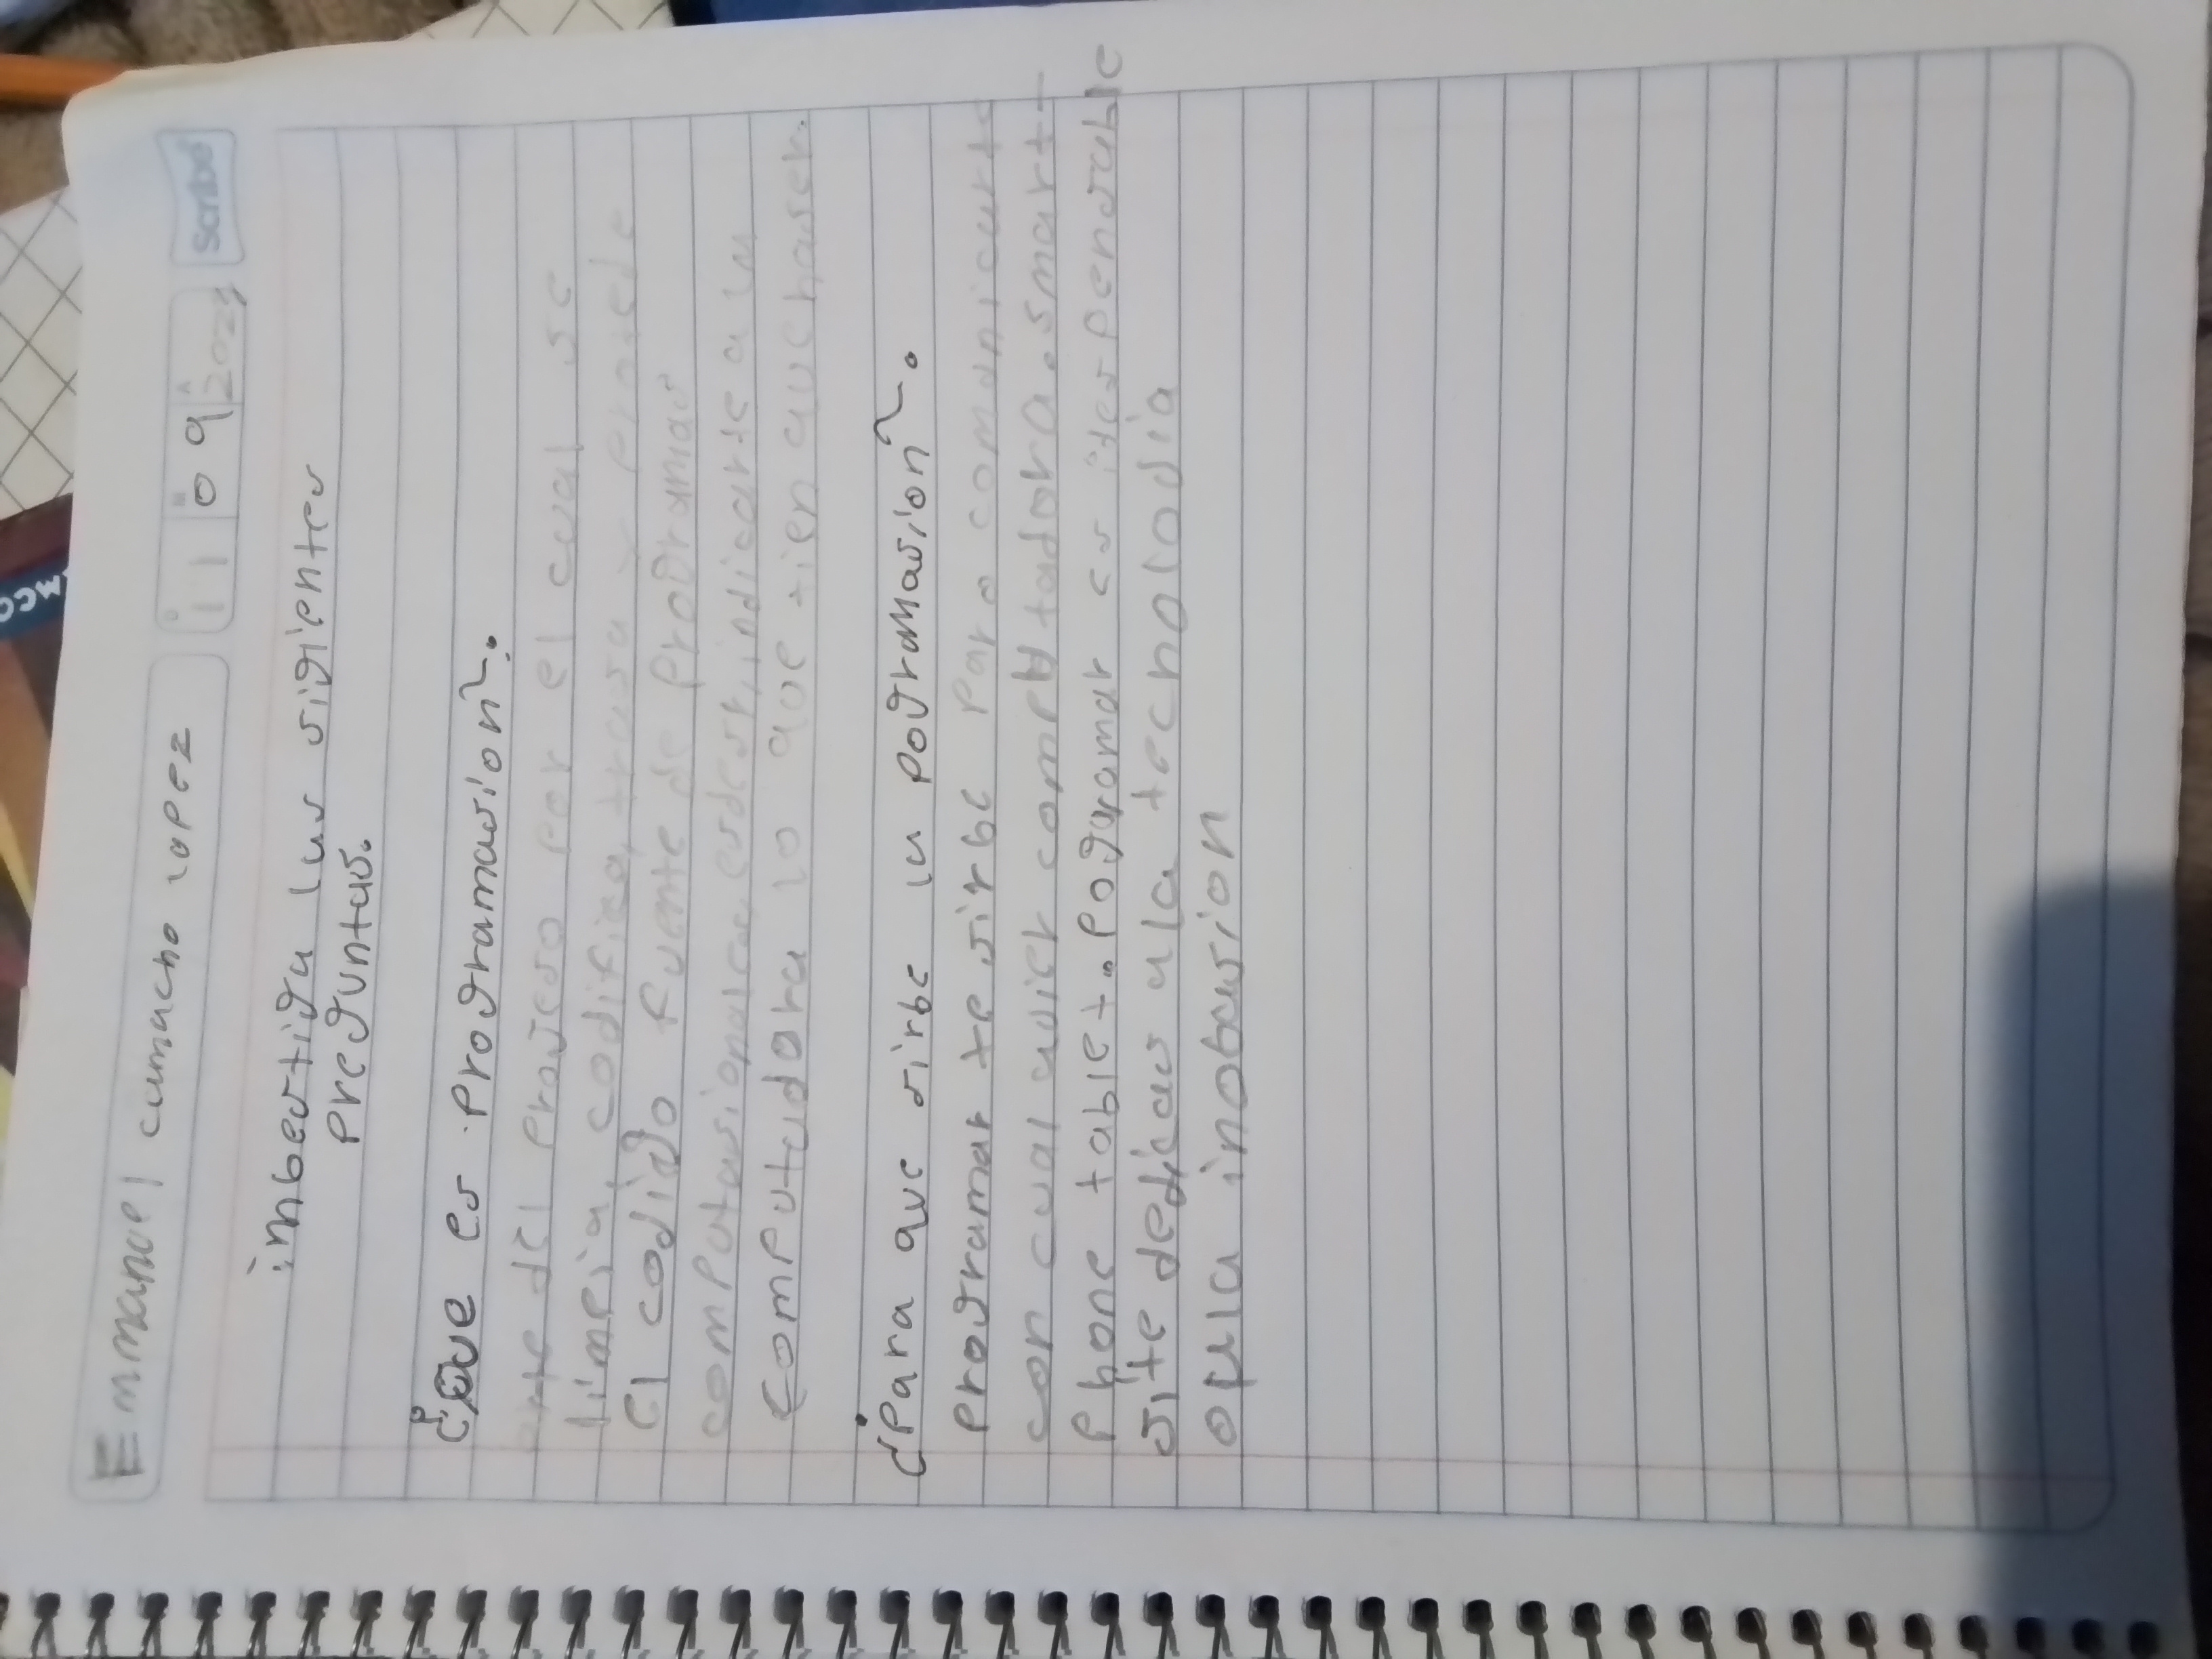 Emmanoel camacho lopez
11 09 2023 Scribe
imbestiga las sigientes
preguntas.
¿Que es programasion?
ante del proseso por el cual se
limpia, codifica, trasa y protede
el codigo fuente de programas
computasionales, esdesir, indicarte a la
computadora lo que tien que haser.
¿Para que sirbe la pogramasion?
programar te sirbe para comunicarte
con cual quier computadora. smart
phone tablet. pogramar es indespensable
si te dedicas a la tecnologia
o a la inobasion
MCO